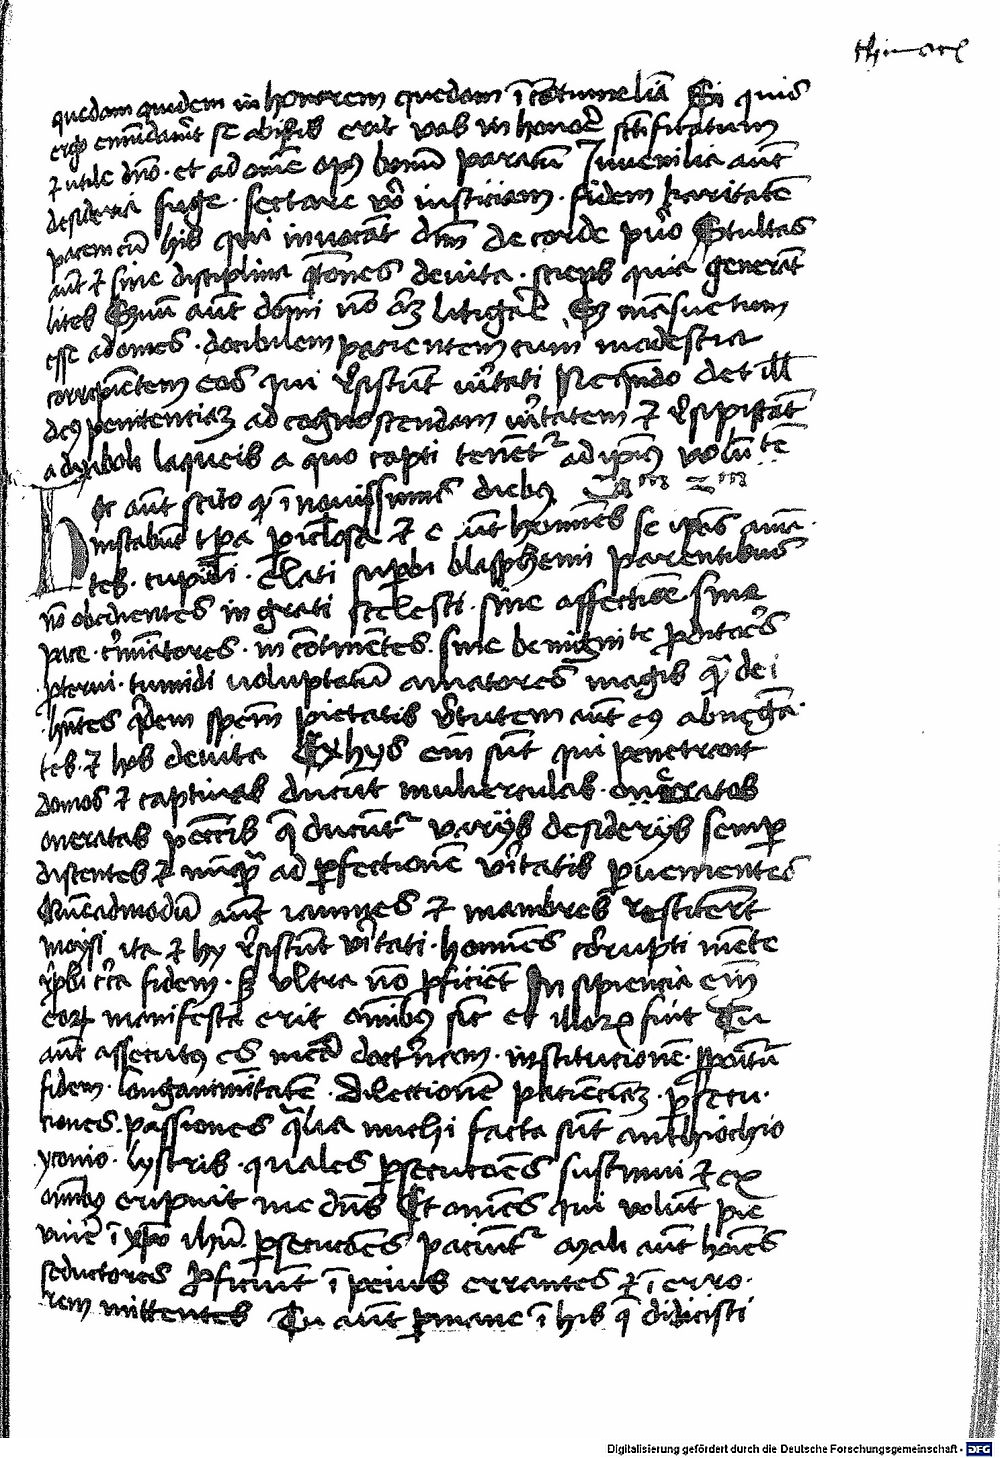 thimoth
quedam quidem in honorem quedam ī cōtumeliā Si quis
ergo emūdauīt se ab istis erit vas in honorē sctificatum
⁊ utile dno · et ad omē opus bonū paratū Juuenilia aūt
desideria fuge · sectare vō iusticiam · fidem karitatē
pacem cū his qui inuocāt dm̄ de corde puro Stultas
aūt ⁊ sine disciplina qōnes deuita · sciens quia generāt
lites Seruū aūt domi nō oꝫ litigare Sꝫ māsuetum
esse ad omēs · docibilem pacientem cum modestia
corripiētem eos qui rēsistūt ueritati Ne quādo det illis
deus penitenciaꝫ ad cognoscendam ueritatem ⁊ resipiscāt
a dyaboli laqueis a quo capti tenēt² ad ipiꝰ volūtatē
Hoc aūt scito quod ī nouissimis diebꝰ Ca 3m
instabūt tpa periculosa ⁊ erūt homines se ipos aman
tes · cupidi · elati superbi blasphemi parentibus
nō obedientes ingrati scelesti · sine affectione sine
pace · criminatores · incōtinentes · sine benignitate proditores
proterui · tumidi uoluptatū amatores magis quā dei
hntes quidem spem pietatis virtutem aūt eiꝰ abnegan
tes · ⁊ hos deuita Ex hys em sūt qui penetrant
domos ⁊ captiuas ducūt mulierculas · oneratas
oneratas peccatis que ducūt² varijs desiderijs semper
discentes ⁊ nūquā ad perfectionē veritatis peruenientes
Quēadmodū aūt iannes ⁊ mambres restiterūt
moysi ita ⁊ hy resistūt veritati · homines corrupti mente
reprobi circa fidem · sꝫ ultra nō proficiēt Insipiencia em
eoꝝ manifesta erit omībꝰ sic et illoꝝ fuit Tu
aūt assecutꝰ es meā doctrinam · institucionē · propositū
fidem · longanimitatē · dilectionē pacienciaꝫ · persecu
tiones · passiones qualia michi facta sūt anthiochio
yconio · lystris · quales persecucōes sustinui ⁊ ex
omībꝰ eripuit me dns Et omēs qui volūt pie
viuē ī xpo ihu persecucōes paciūt² mali aūt hoīes
seductores proficiūt ī peius errantes ⁊ ī erro
rem mittentes Tu aūt permane ī his que didicisti
Digitalisierung gefördert durch die Deutsche Forschungsgemeinschaft - DFG